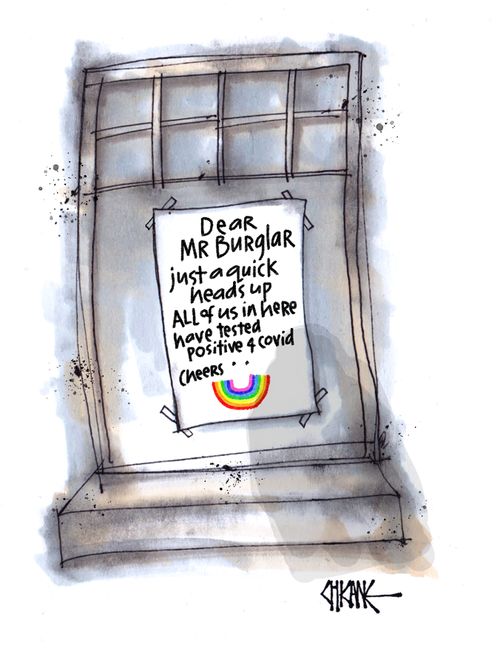 Dear
MR BurgLAR
just a quick
heads up
ALL of us in here
have tested
positive 4 covid
cheers . .
CHICANE